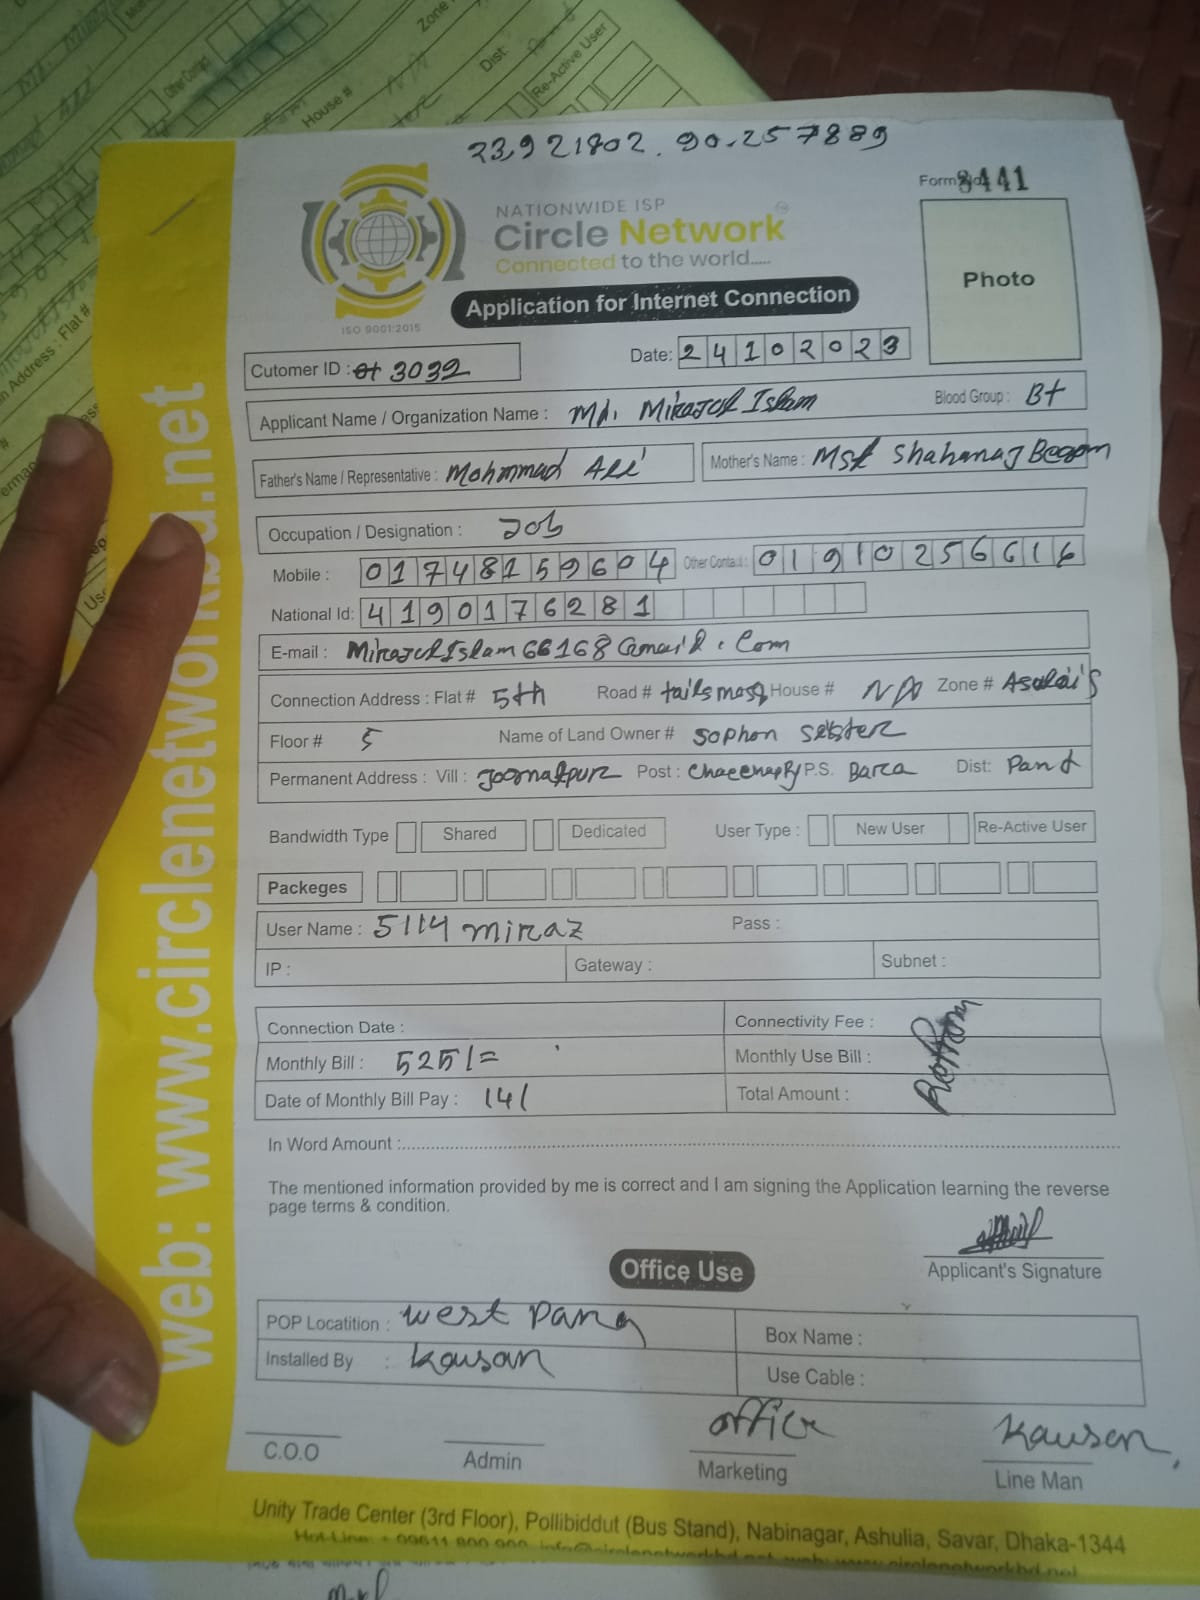 23.921802. 90.257889
Form No 8441
NATIONWIDE ISP
Circle Network
Connected to the world.....
ISO 9001:2015
Photo
Application for Internet Connection
Cutomer ID : 3032
Date: 24102023
Applicant Name / Organization Name : Md. Mirajul Islam Blood Group : B+
Father's Name / Representative : Mohmmad Ali Mother's Name : Mst Shahanaj Begom
Occupation / Designation : Job
Mobile : 01748159604 Other Contact : 01910256616
National Id: 4190176281
E-mail : MirajulIslam66168@mail.com
Connection Address : Flat # 5th Road # House # N/A Zone #
Floor # 5 Name of Land Owner # Sophon
Permanent Address : Vill : Post : P.S. Dist:
Bandwidth Type Shared Dedicated User Type : New User Re-Active User
Packeges
User Name : 5114 miraz Pass :
IP : Gateway : Subnet :
Connection Date : Connectivity Fee :
Monthly Bill : 525/= Monthly Use Bill :
Date of Monthly Bill Pay : 14/ Total Amount :
In Word Amount :
The mentioned information provided by me is correct and I am signing the Application learning the reverse
page terms & condition.
Applicant's Signature
Office Use
POP Locatition : west para Box Name :
Installed By : Kausar Use Cable :
office Kausar
C.O.O Admin Marketing Line Man
Unity Trade Center (3rd Floor), Pollibiddut (Bus Stand), Nabinagar, Ashulia, Savar, Dhaka-1344
web: www.circlenetworkbd.net
House #
Zone
Dist:
Re-Active User